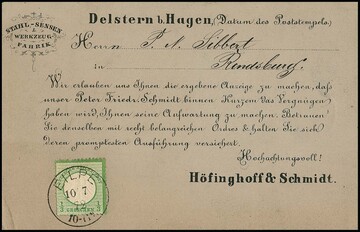 STAHL-SENSEN
&
WERKZEUG-
FABRIK
Delstern b. Hagen, (Datum des Poststempels.)
Herrn P. N. Sibbert
in Rendsburg
Wir erlauben uns Ihnen die ergebene Anzeige zu machen, daß
unser Peter Friedr. Schmidt binnen Kurzem das Vergnügen
haben wird, Ihnen seine Aufwartung zu machen. Betrauen
Sie denselben mit recht belangreichen Ordres & halten Sie sich
deren promptesten Ausführung versichert.
Hochachtungsvoll!
Höfinghoff & Schmidt.
10 7